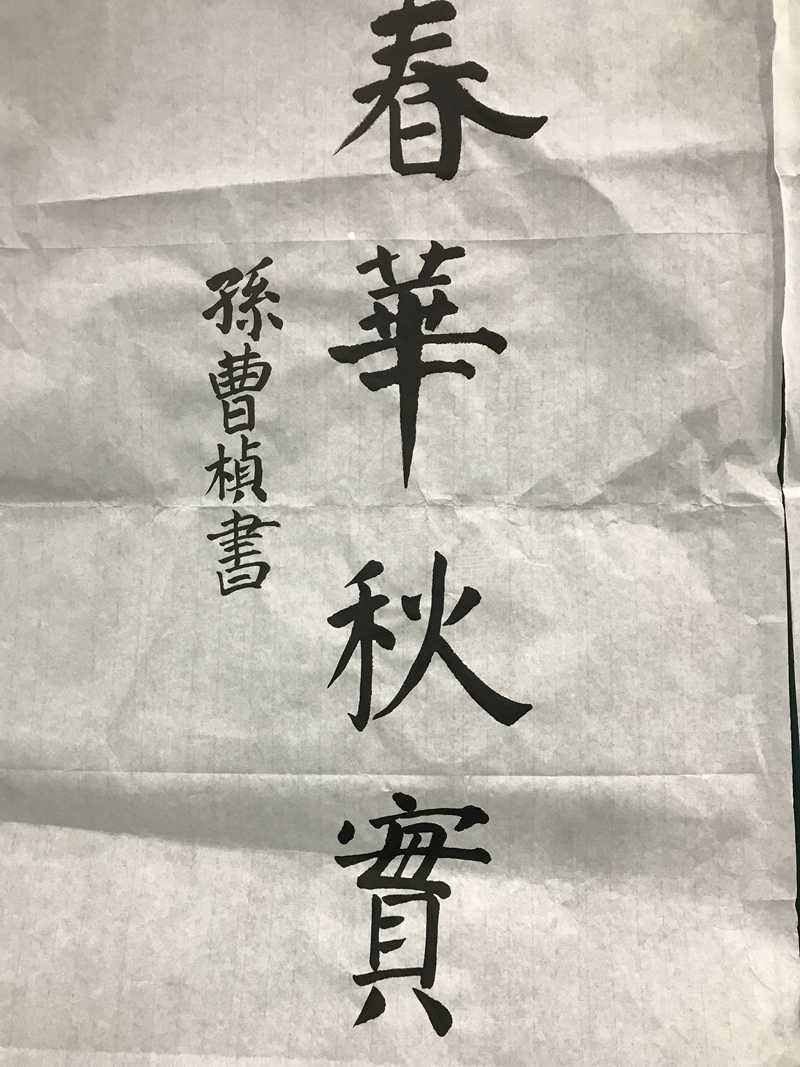 春華秋實
孫曹楨書